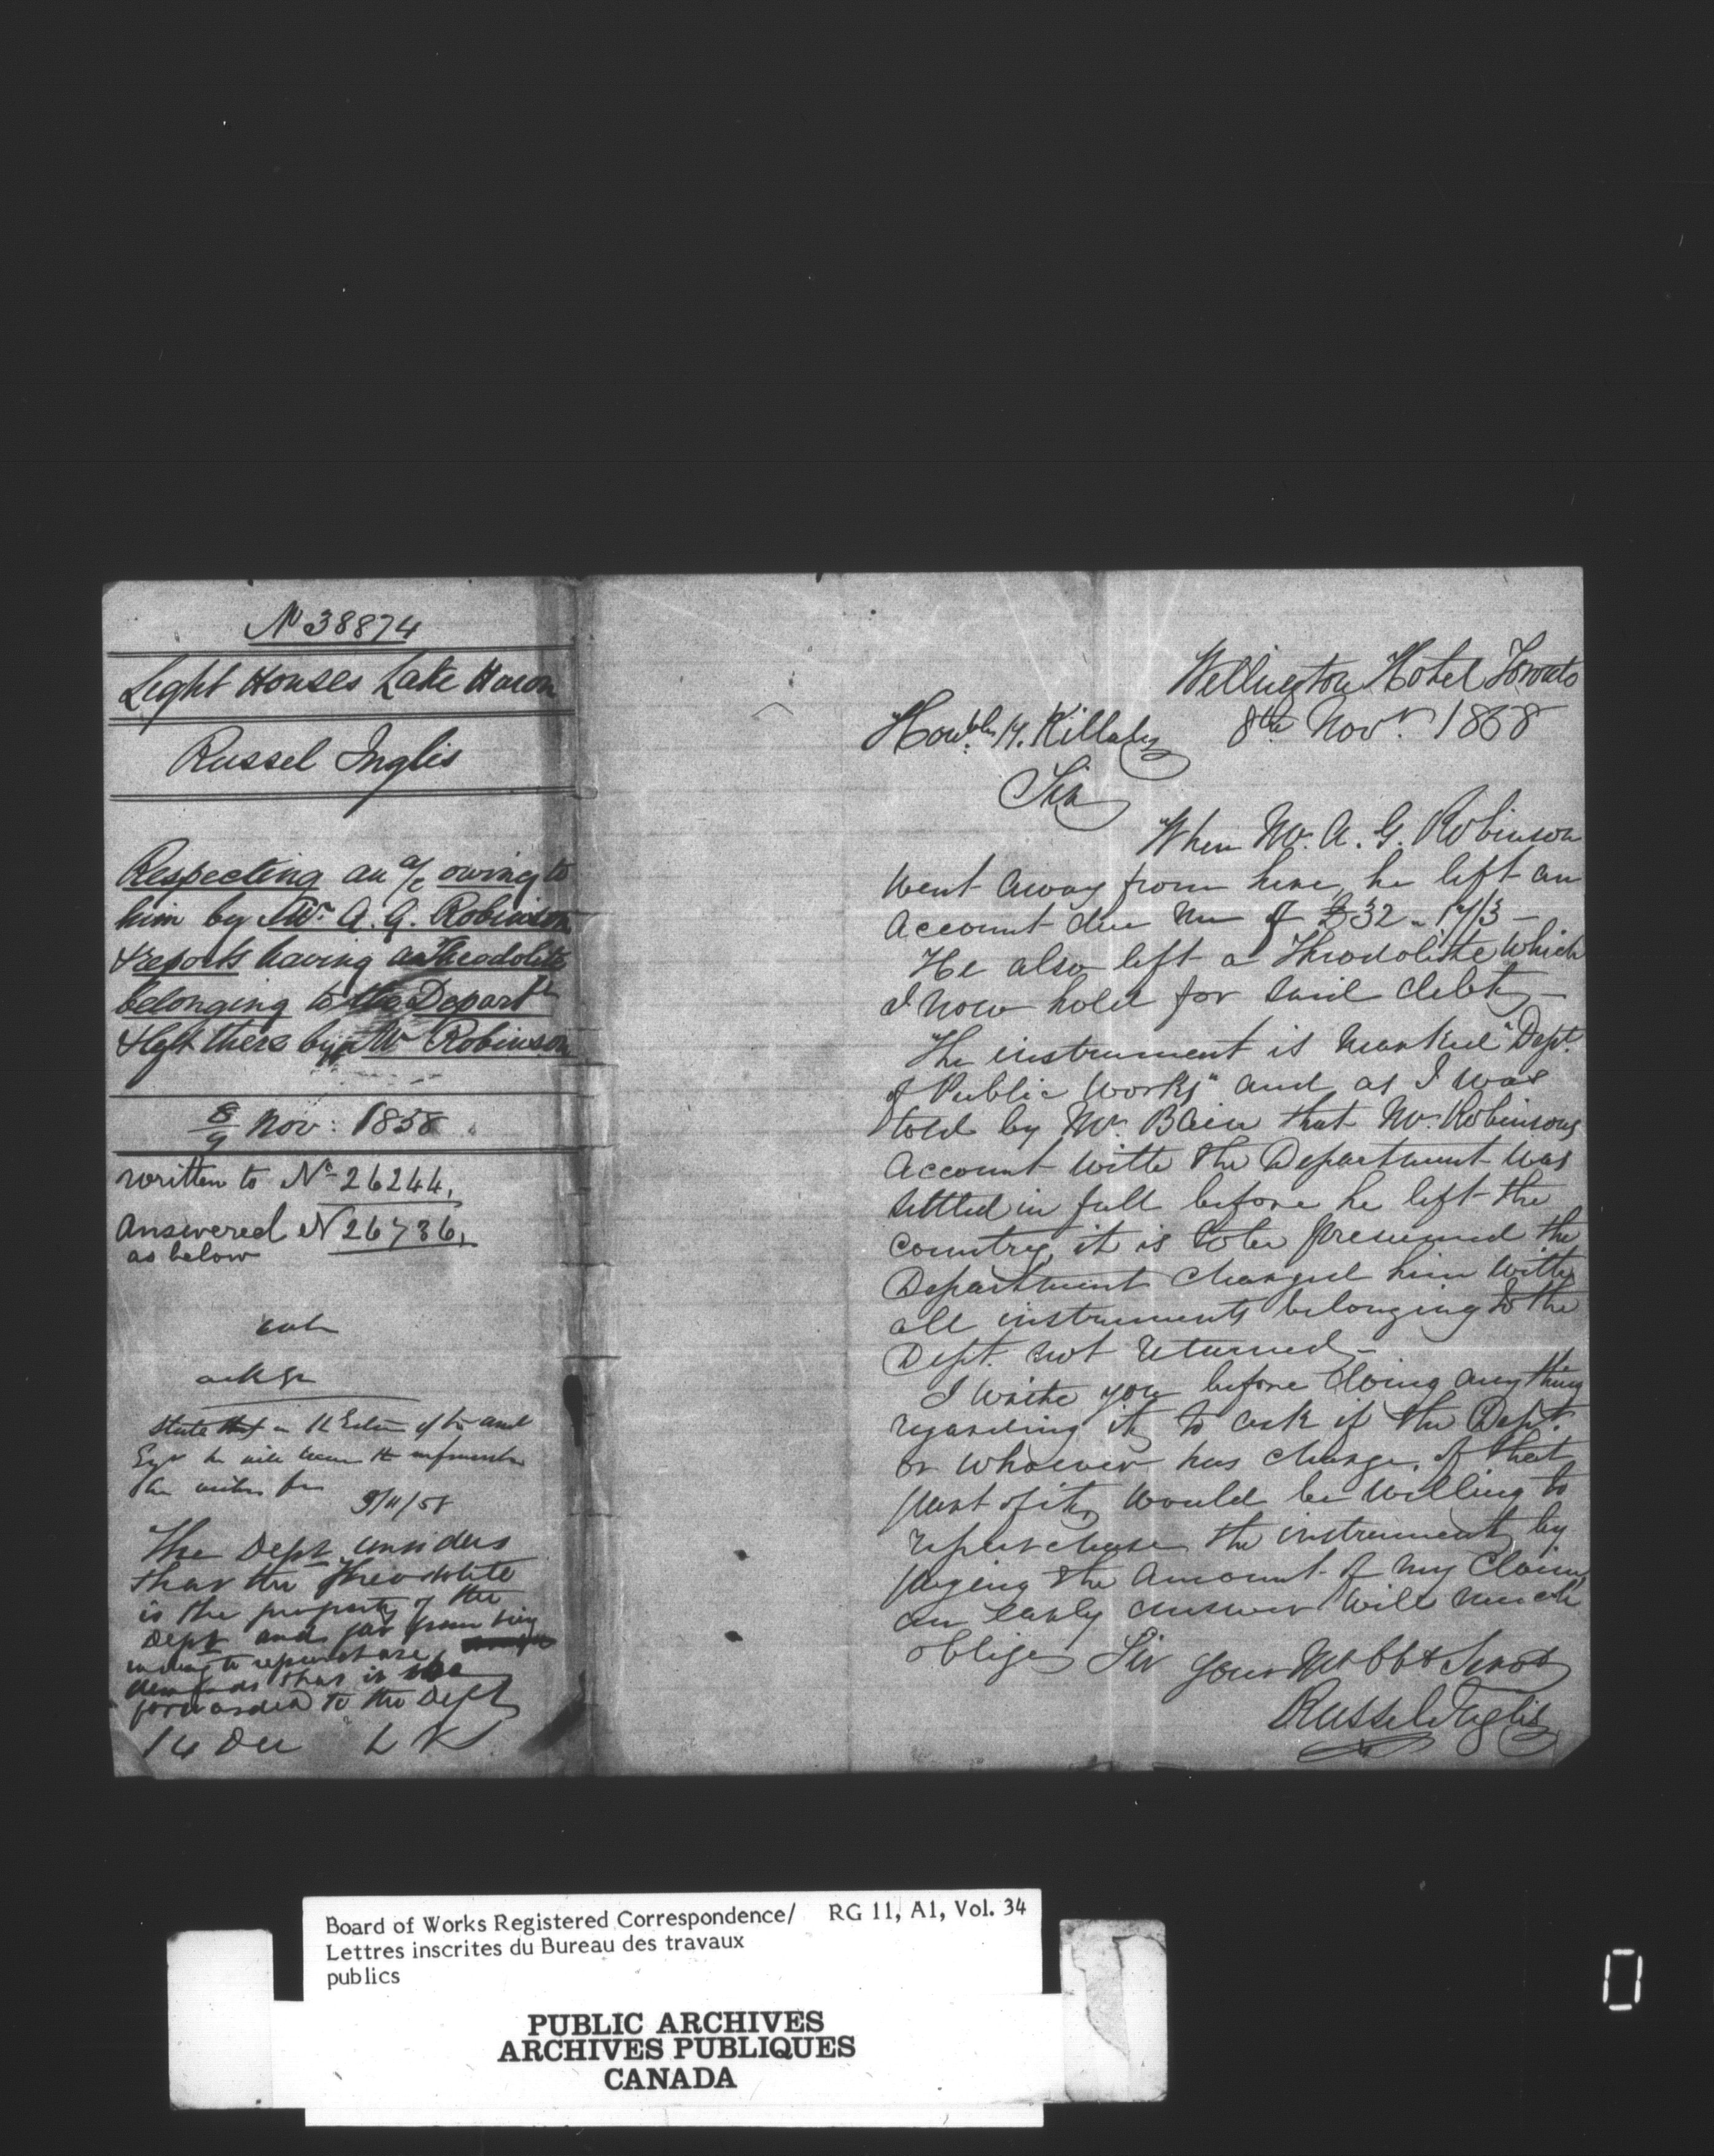 No 38874
Light Houses Lake Huron
Russel Inglis
Respecting an a/c owing to
him by Mr. A. G. Robinson
& reports having a Theodolite
belonging to the Departt
& left there by Mr Robinson
8/9 Nov: 1858
written to No 26244,
Answered No 26736,
as below
ackge
State
9/11/58
The Dept considers
that the Theodolite
is the property of the
Dept and far from being
willing to repurchase,
demands that it be
forwarded to the Dept
14 Dec
Wellington Hotel Toronto
8th Novr. 1858
Honble H. Killaly
Sir
When Mr. A. G. Robinson
went away from here, he left an
account due me of £32 - 17/3 -
He also left a Theodolite which
I now hold for said debt -
The instrument is marked "Dept.
of Public Works" and as I was
told by Mr. Bain that Mr. Robinsons
account with the Department was
settled in full before he left the
country, it is to be presumed the
Department charged him with
all instruments belonging to the
Dept. not returned -
I write you before doing anything
regarding it, to ask if the Dept.
or whoever has charge of that
part of it, would be willing to
repurchase the instrument by
paying the amount of my claim
an early answer will much
oblige Sir your Mt Obt Servt
Russel Inglis
Board of Works Registered Correspondence/ RG 11, A1, Vol. 34
Lettres inscrites du Bureau des travaux
publics
PUBLIC ARCHIVES
ARCHIVES PUBLIQUES
CANADA